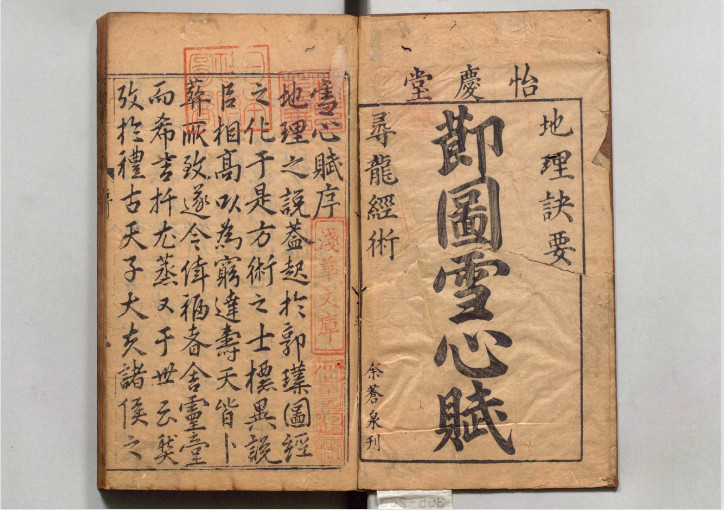 怡慶堂
地理訣要
節圖雪心賦
尋龍經術
余蒼泉刊
雪心賦序
地理之說蓋起於郭璞圖經
之化于是方術之士標異說
臣相高以為窮達壽夭皆卜
葬所致遂令徼福者舍靈臺
而希吉扦尤蒸又于世云
攷於禮古天子大夫諸侯之
淺草文庫
305-265